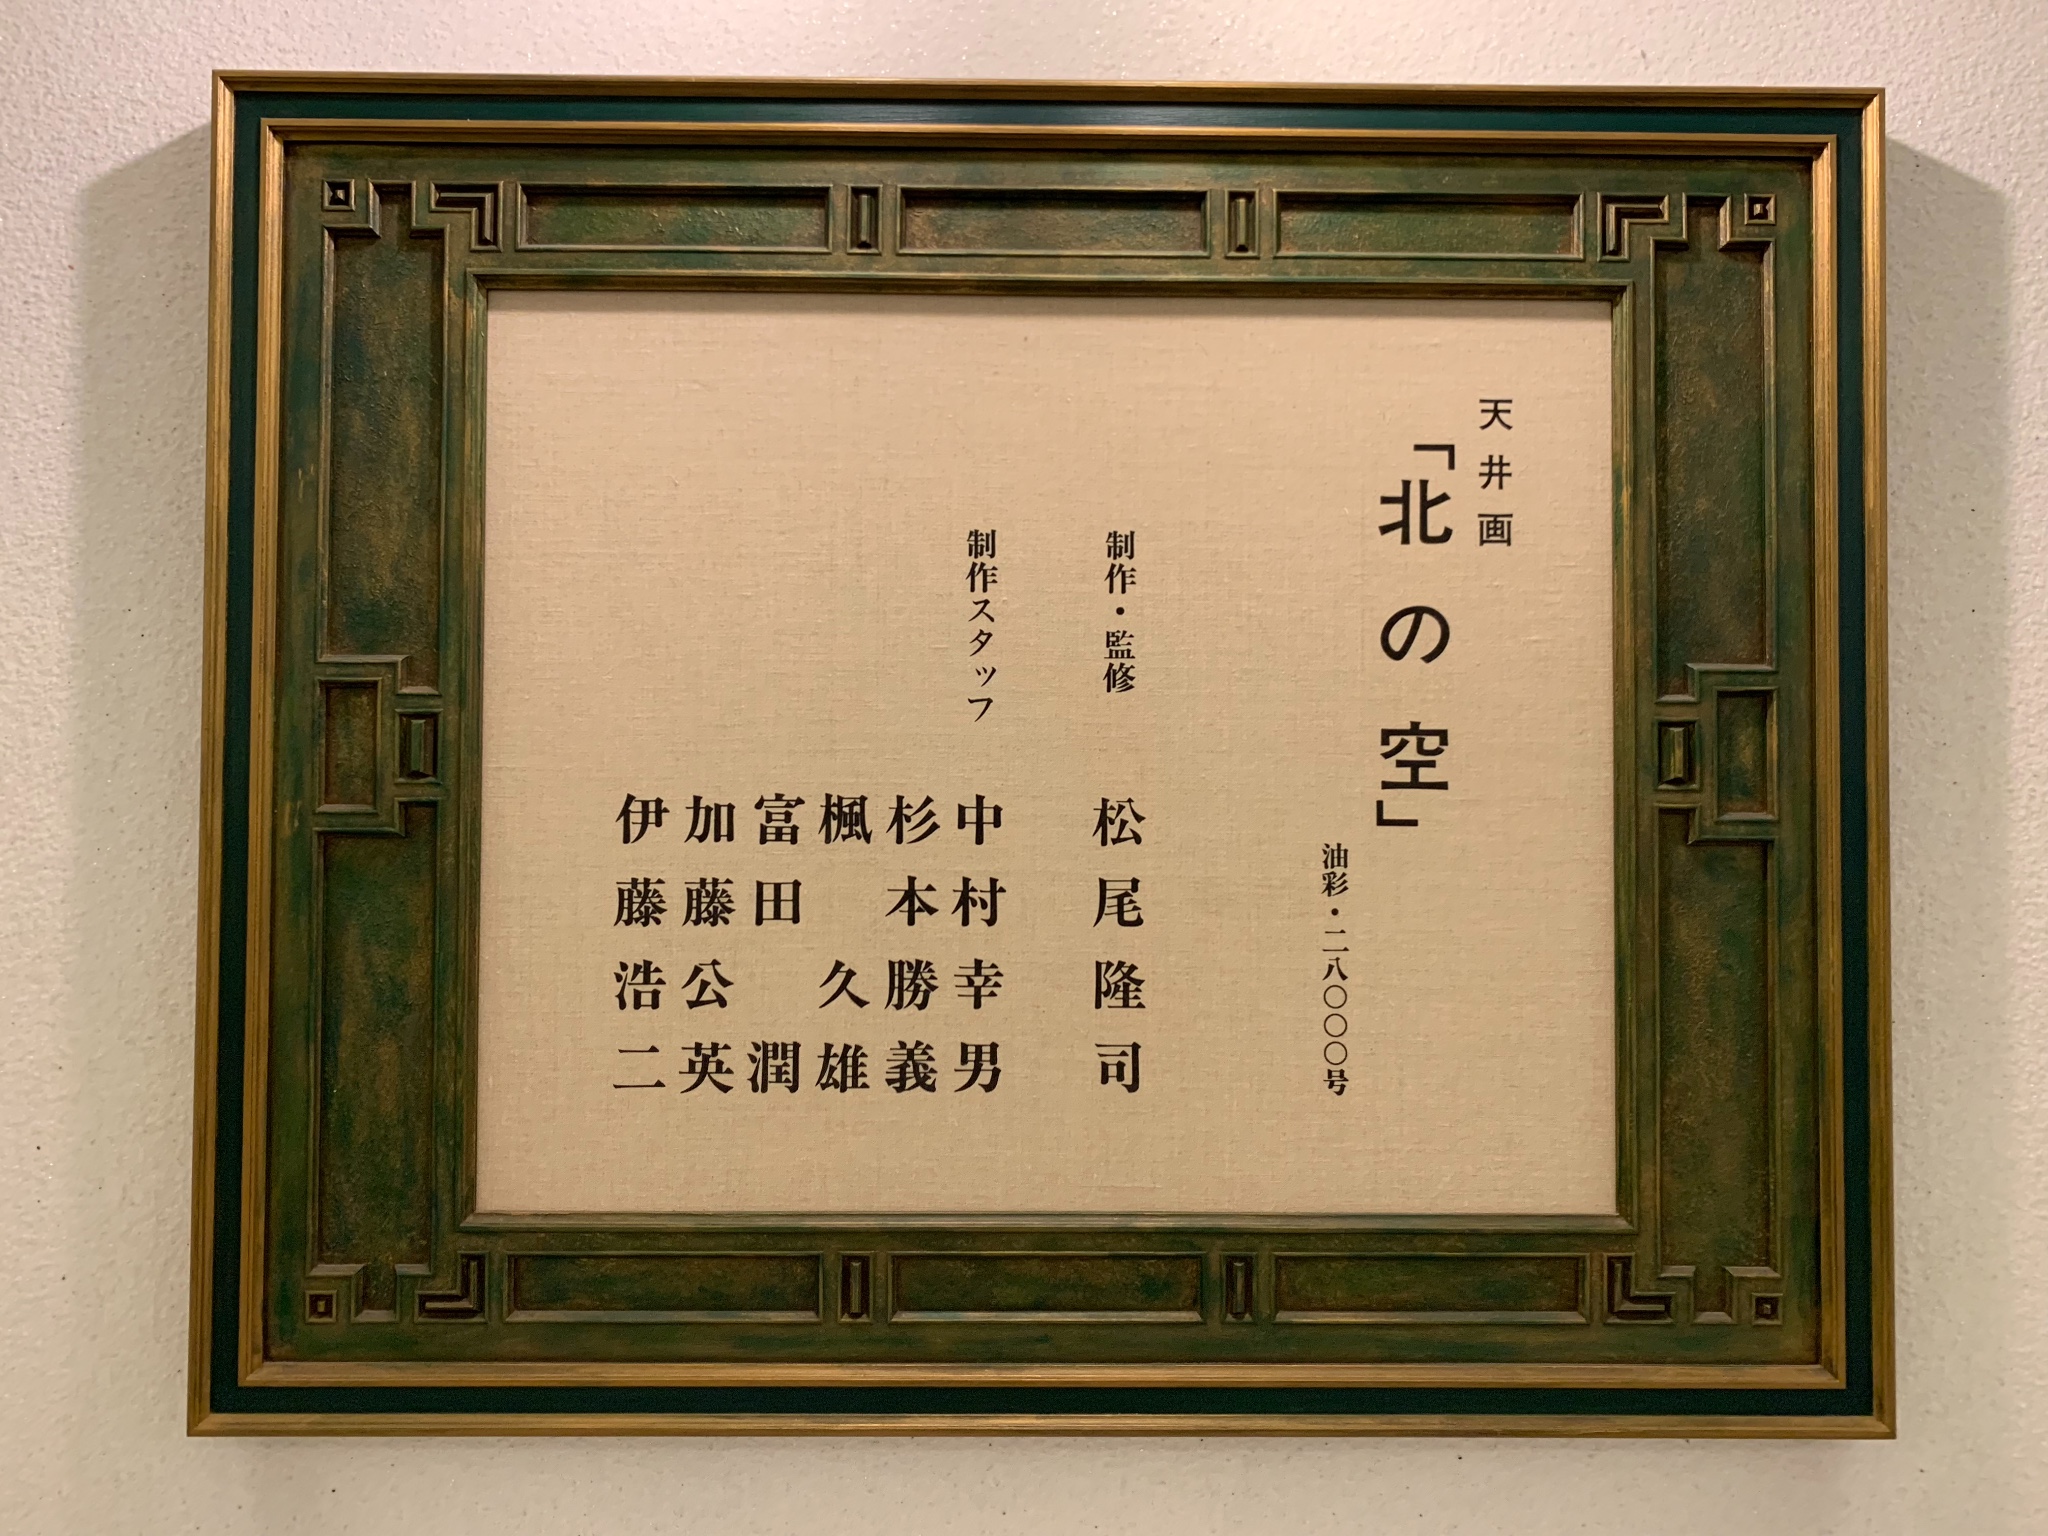 天井画
「北の空」
油彩・二八〇〇〇号
制作・監修 松尾隆司
制作スタッフ 中村幸男
杉本勝義
楓 久雄
富田 潤
加藤公英
伊藤浩二